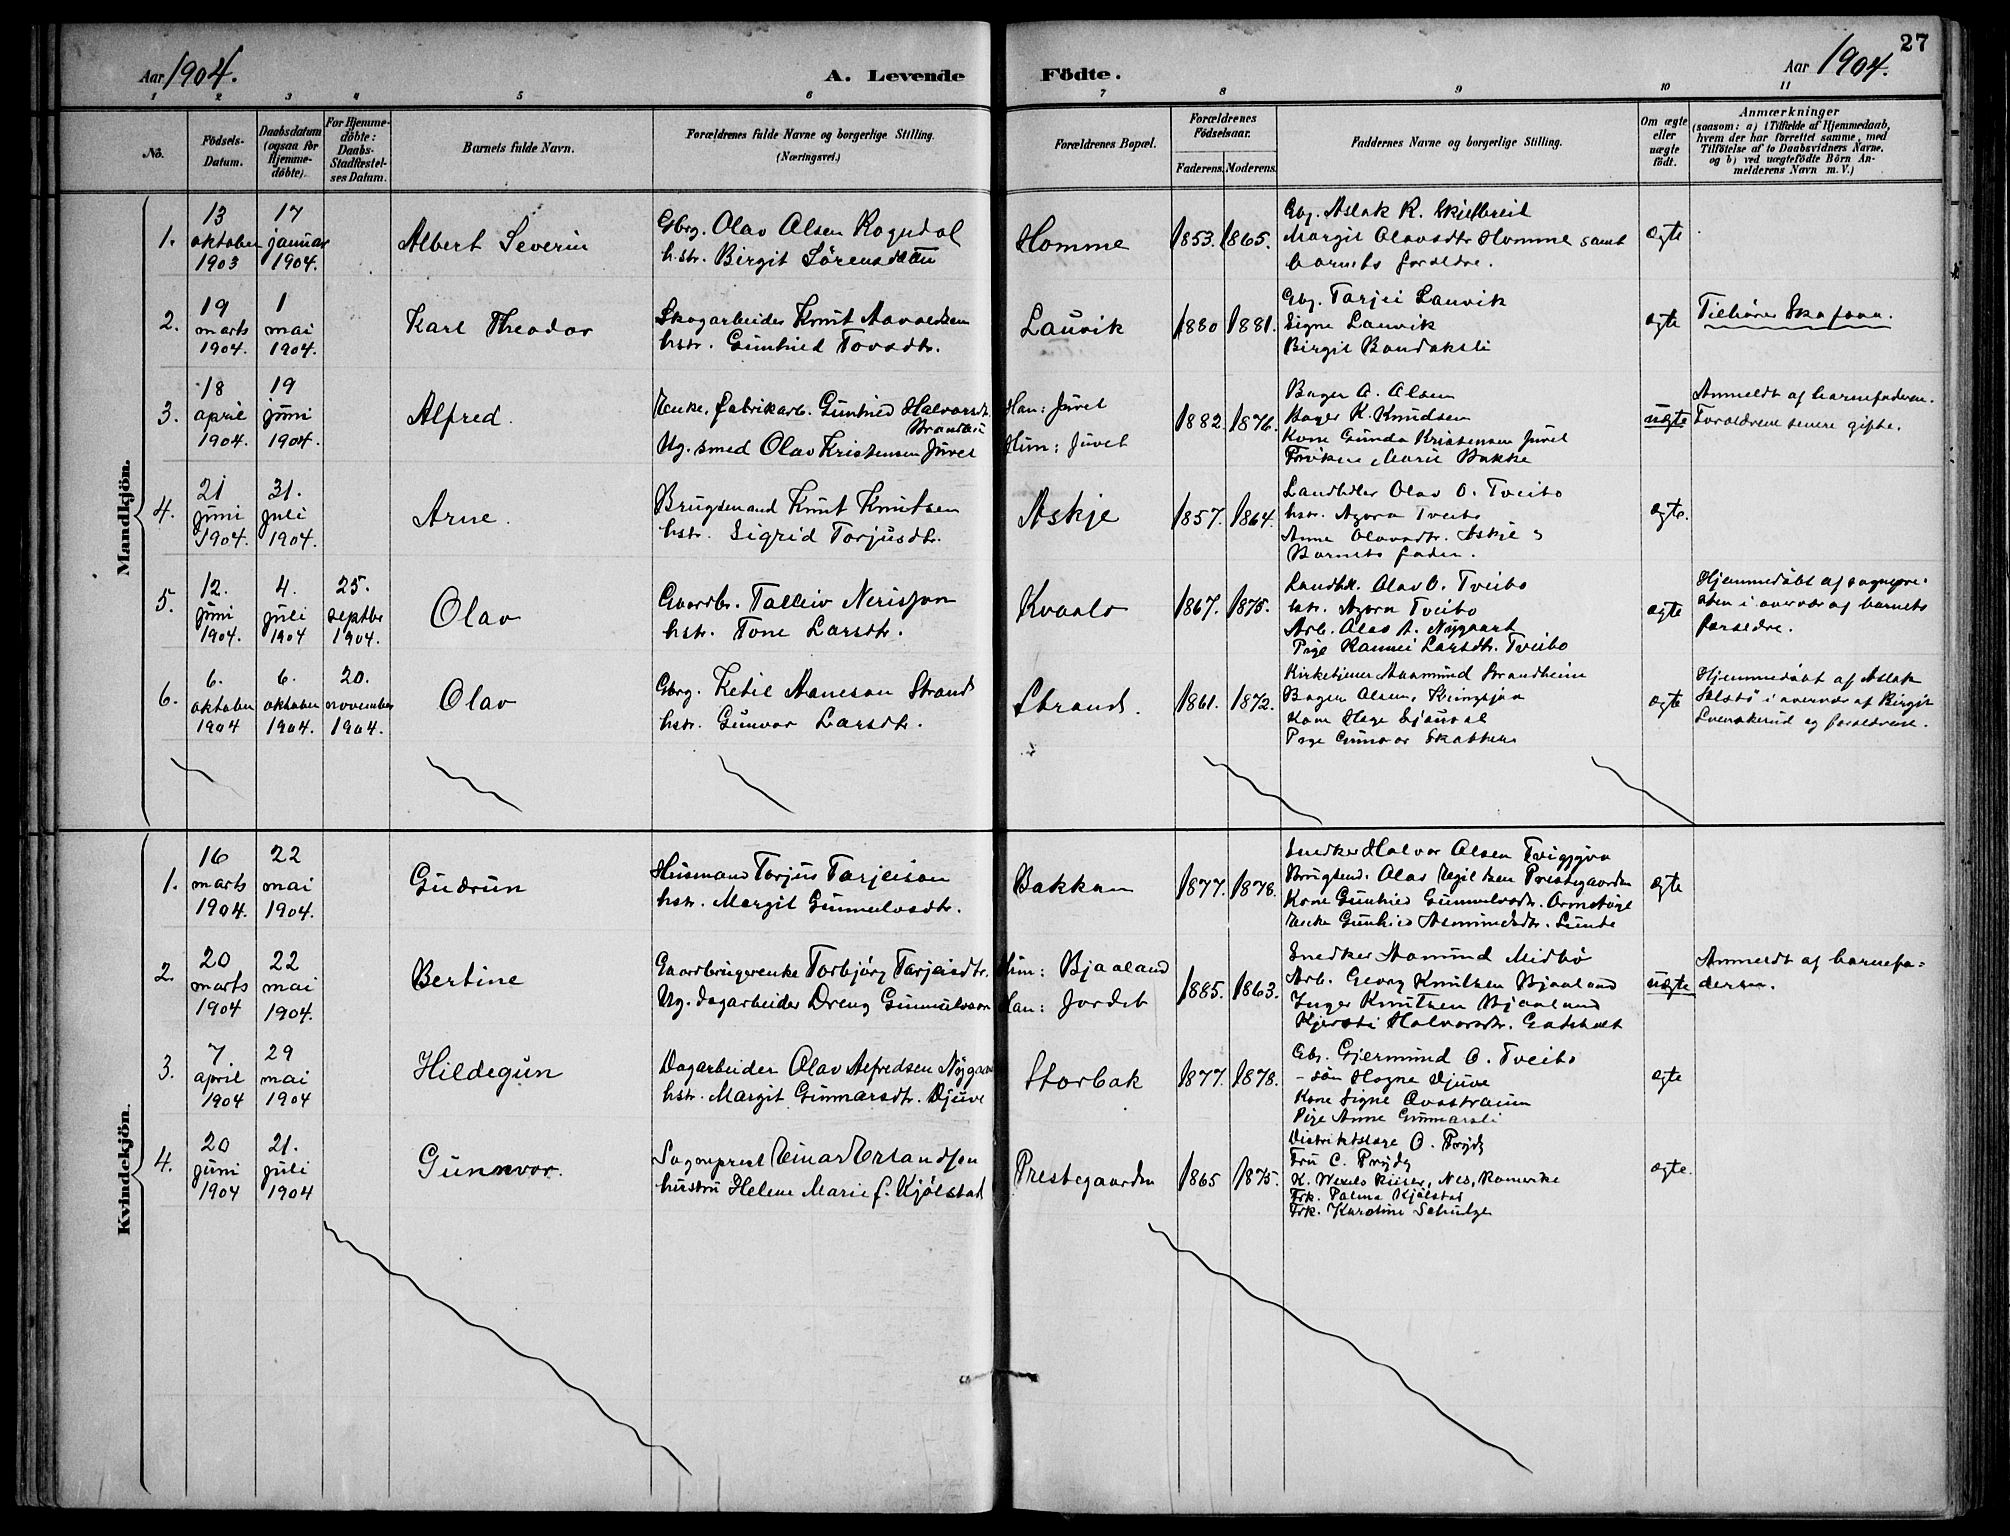 27
Aar 1904.
A. Levende Födte.
Aar 1904.
1 2 3 4 5 6 7 8 9 10 11
No.
Födsels-Datum.
Daabsdatum (ogsaa for Hjemme-döbte).
For Hjemme-döbte: Daabs-Stadfæstel-ses Datum.
Barnets fulde Navn.
Forældrenes fulde Navne og borgerlige Stilling. (Næringsvei.)
Forældrenes Bopæl.
Forældrenes Födselsaar.
Faderens. Moderens.
Faddernes Navne og borgerlige Stilling.
Om ægte eller uægte födt.
Anmærkninger
(saasom: a) i Tilfælde af Hjemmedaab, hvem der har forrettet samme, med Tilföielse af to Daabsvidners Navne, og b) ved uægtefödte Börn An-melderens Navn m. V.)
Mandkjön.
1. 13 oktober 1903
17 januar 1904.
Albert Severin
Gbrg. Olav Olsen Rogndal
hstr. Birgit Sörensdatter
Homme
1853. 1865.
Gbg. Aslak R. Skjelbreid
Margit Olavsdtr Homme samt
barnets forældre.
ægte
2. 19 marts 1904.
1 mai 1904.
Karl Theodor
Skogarbeider Knut Aavoldsen
hstr. Gunhild Tovsdtr.
Lauvik
1880 1881.
Gbg. Tarjei Lauvik
Signe Lauvik
Birgit Bandaksli
ægte
Tilhörer Skafsaa.
3. 18 april 1904.
19 juni 1904.
Alfred.
Enke, fabrikarb. Gunhild Halvorsdtr.
Ug. smed Olav Kristensen Juvet
Han: Juvet
Hun: Juvet
1882. 1876.
Bager O. Olsen
Bager K. Knudsen
Kone Gunda Kristensen Juvet
Marie Bakke
uægte
Anmeldt af barnefaderen.
Forældrene senere gifte.
4. 21 juni 1904.
31. juli 1904.
Arne.
Brugsmand Knut Knutsen
hstr. Sigrid Torjusdtr.
Askje
1857. 1864.
Landhdler Olav O. Tveito
hstr. Azora Tveito
Anne Olavsdtr. Askje &
Barnets fader.
ægte.
5. 12. juni 1904.
4. juli 1904
25. septbr 1904.
Olav
Gaardbr. Talleiv Nerisson
hstr. Tone Larsdtr.
Kvaale
1867. 1875.
Landhdl. Olav O. Tveito
hstr. Azora Tveito
Arb. Olav A. Nygaard
Pige Rannei Larsdtr. Tveito
ægte
Hjemmedöbt af sognepre-
sten i overvær af barnets
forældre.
6. 6. oktober 1904
6. oktober 1904.
20. november 1904.
Olav
Gbrg. Ketil Aanesøn Strand
hstr. Gunvor Larsdtr.
Strand.
1861. 1872.
Kirketjener Aasmund Brandheim
Bager Olsen,
Kone Hæge Sjauvol
Pige Gunvor Skatteu
ægte
Hjemmedöbt af Aslak
i overvær af Birgit
Svenskerud og forældrene.
Kvindekjön.
1. 16 marts 1904.
22 mai 1904.
Gudrun
Husmand Torjus Tarjeison
hstr. Margit Gunnulvsdtr.
Bakkan
1877. 1878.
Snedker Halvor Olsen
Brugsmd. Olav Egilsen Prestegaarden
Kone Gunhild Gunnulvsdtr.
Enke Gunhild Aasmundsdtr. Lunde
ægte
2. 20 marts 1904
22 mai 1904.
Bertine
Gaardbrugerenke Torbjörg Tarjeisdtr.
Ug. dagarbeider Dreng Gunnulvson
Hun: Bjaaland
Han: Jordet
1885. 1863.
Snedker Aamund Midbö
Arb. Georg Knutsen Bjaaland
Inger Knutsen Bjaaland
Kjersti Halvorsdtr.
uægte
Anmeldt af barnefa-
deren.
3. 7. april 1904
29 mai 1904
Hildegun
Dagarbeider Olav Alfredsen Nygaard
hstr. Margit Gunnarsdtr. Djuve
Storbak
1877. 1878.
Gbr. Gjermund O. Tveito
- sön Hogne Djuve
Kone Signe Ovastraum
Pige Anne Gunnarsli
ægte
4. 20 juni 1904
21. juli 1904
Gunnvor.
Sogneprest Einar Erlandsen
hustru Helene Marie f. Kjölstad
Prestegaarden
1865 1875.
Distriktslæge O. Prydz
Fru C. Prydz
K. Wexels Riiser, Nes, Romerike
Frk. Palma Kjölstad
Frk. Karoline Schulze
ægte.